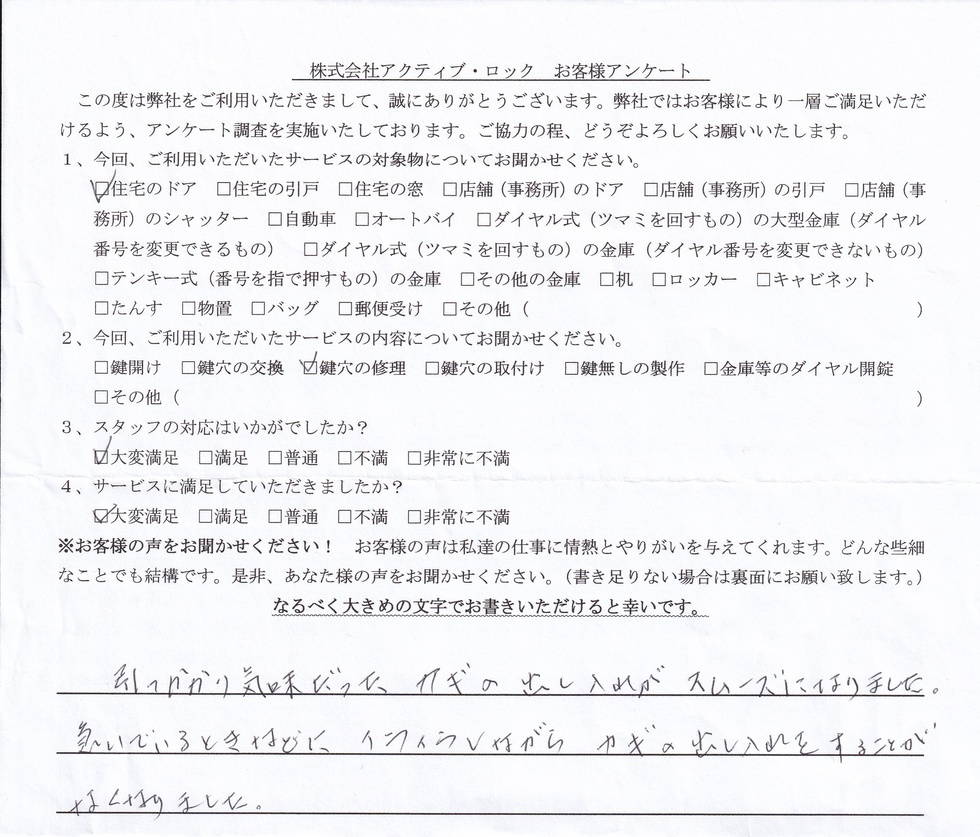 株式会社アクティブ・ロック　お客様アンケート
この度は弊社をご利用いただきまして、誠にありがとうございます。弊社ではお客様により一層ご満足いただ
けるよう、アンケート調査を実施いたしております。ご協力の程、どうぞよろしくお願いいたします。
１、今回、ご利用いただいたサービスの対象物についてお聞かせください。
☑住宅のドア　□住宅の引戸　□住宅の窓　□店舗（事務所）のドア　□店舗（事務所）の引戸　□店舗（事
務所）のシャッター　□自動車　□オートバイ　□ダイヤル式（ツマミを回すもの）の大型金庫（ダイヤル
番号を変更できるもの）　□ダイヤル式（ツマミを回すもの）の金庫（ダイヤル番号を変更できないもの）
□テンキー式（番号を指で押すもの）の金庫　□その他の金庫　□机　□ロッカー　□キャビネット
□たんす　□物置　□バッグ　□郵便受け　□その他（　　　　　　　　　　）
２、今回、ご利用いただいたサービスの内容についてお聞かせください。
□鍵開け　□鍵穴の交換　☑鍵穴の修理　□鍵穴の取付け　□鍵無しの製作　□金庫等のダイヤル開錠
□その他（　　　　　　　　　　）
３、スタッフの対応はいかがでしたか？
☑大変満足　□満足　□普通　□不満　□非常に不満
４、サービスに満足していただきましたか？
☑大変満足　□満足　□普通　□不満　□非常に不満
※お客様の声をお聞かせください！　お客様の声は私達の仕事に情熱とやりがいを与えてくれます。どんな些細
なことでも結構です。是非、あなた様の声をお聞かせください。（書き足りない場合は裏面にお願い致します。）
なるべく大きめの文字でお書きいただけると幸いです。
引っかかり気味だった カギの出し入れが スムーズになりました。
急いでいるときなどに イライラしながら カギの出し入れをすることが
なくなりました。